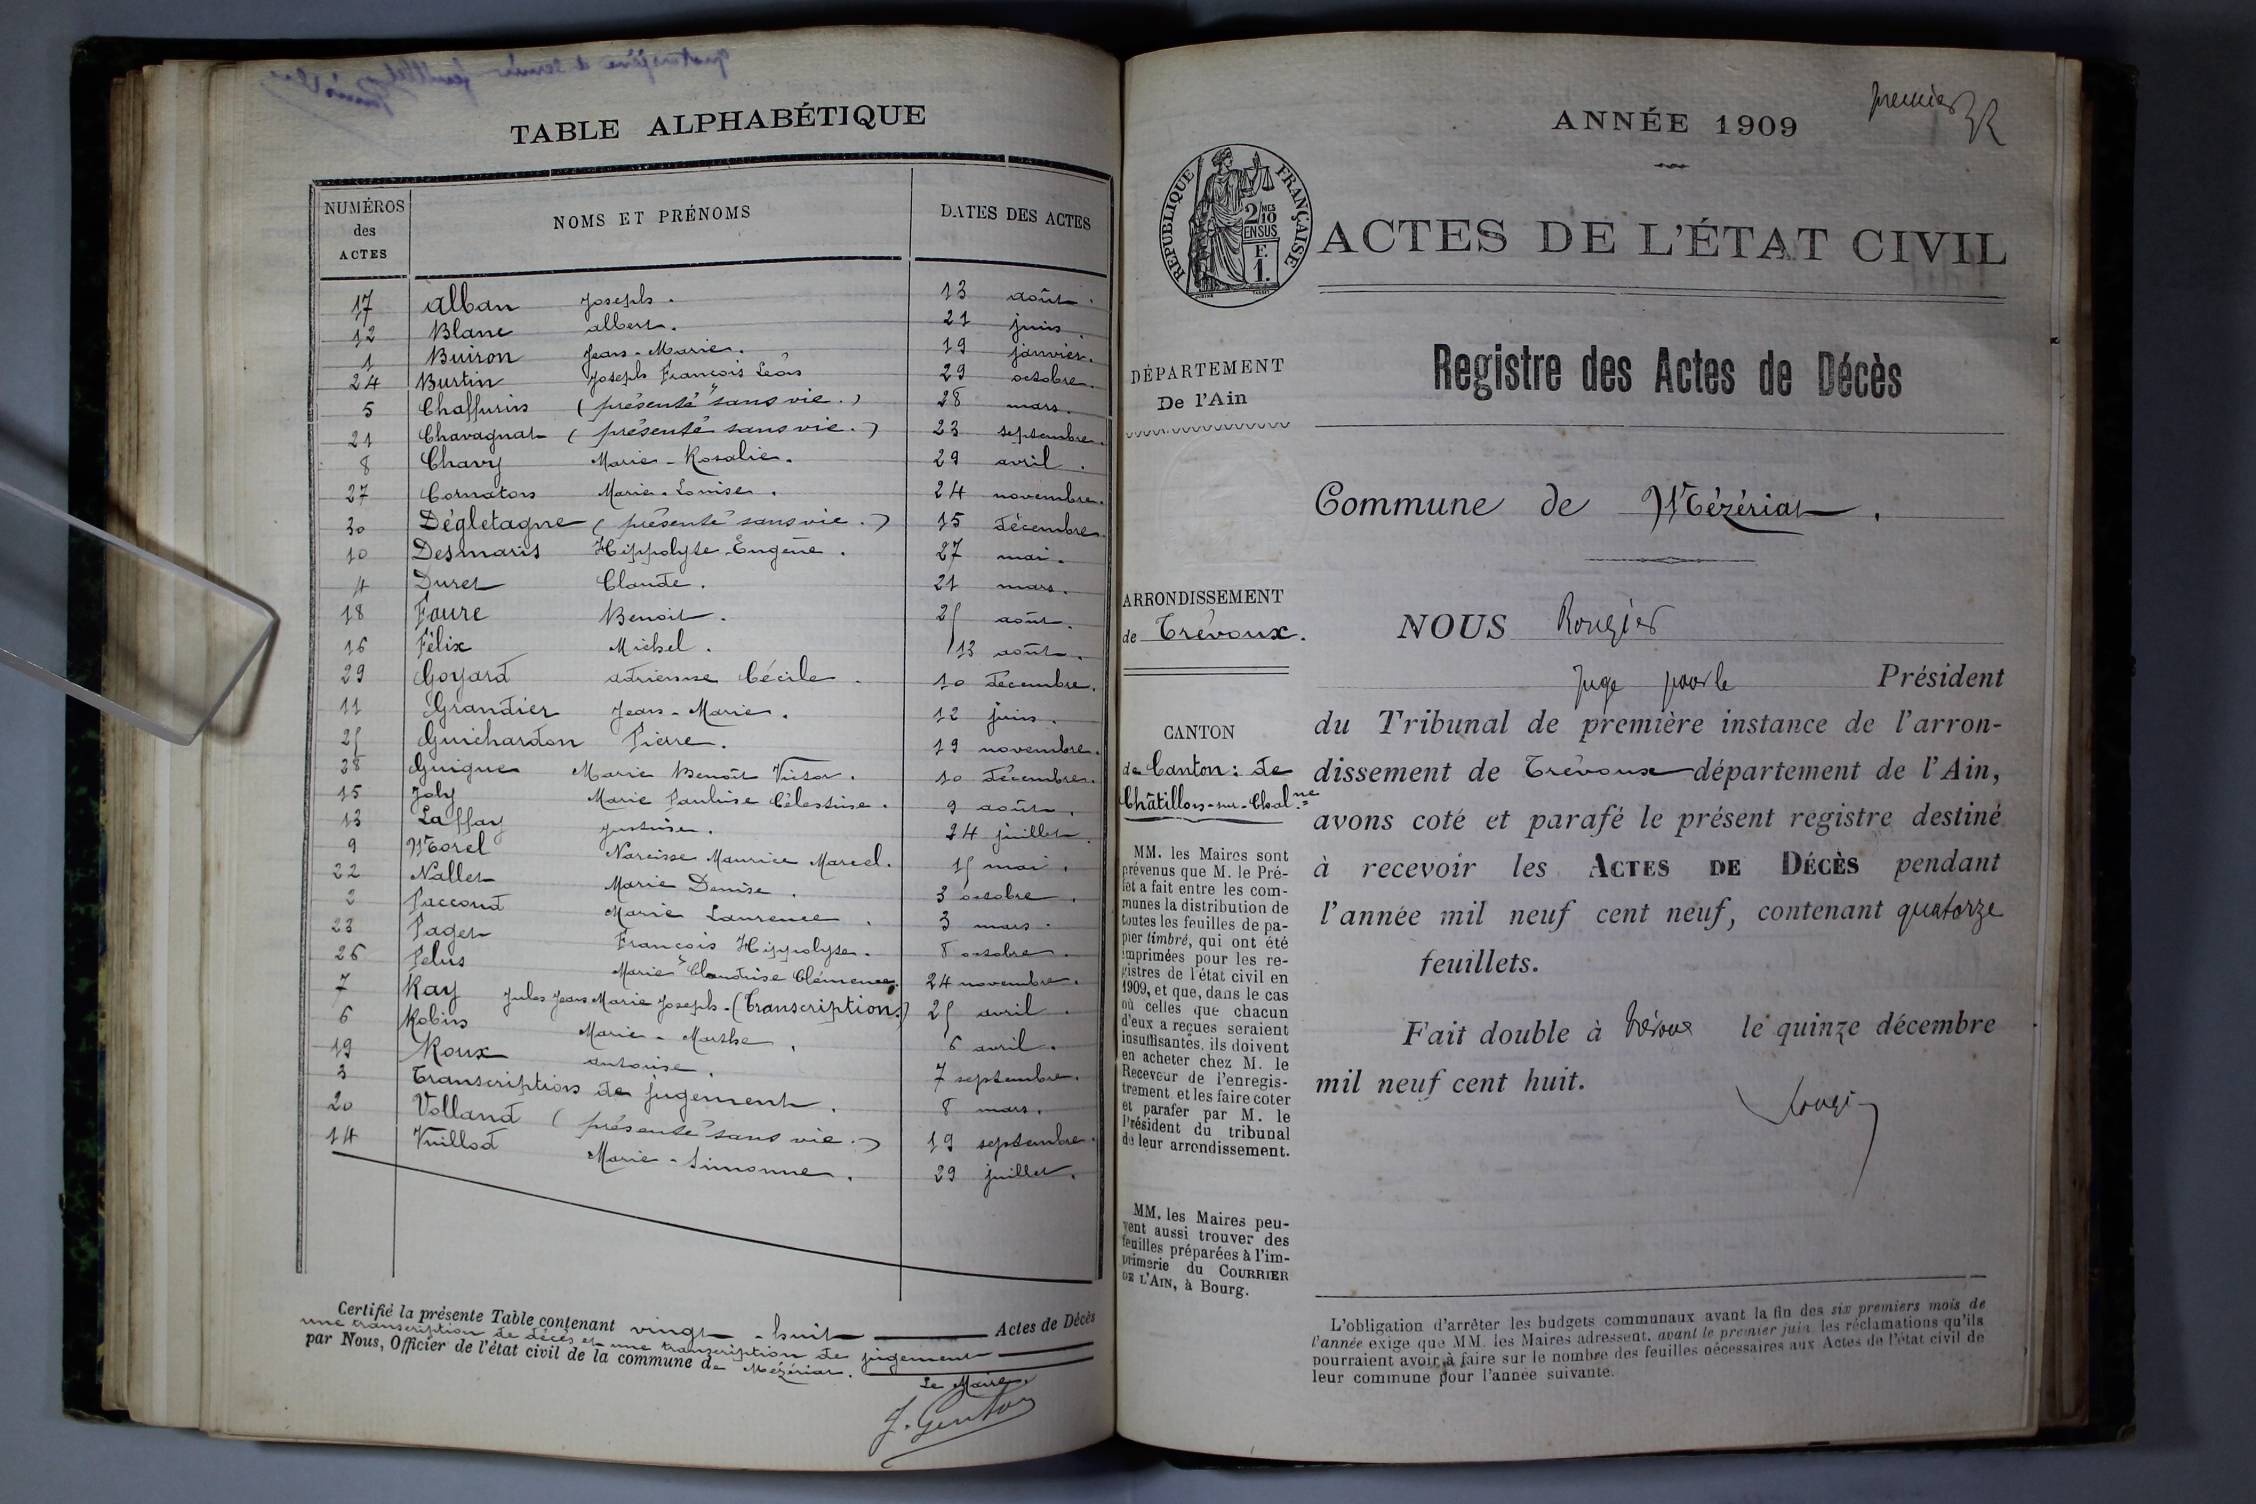 TABLE ALPHABÉTIQUE
NUMÉROS des ACTES NOMS ET PRÉNOMS DATES DES ACTES
17 Alban Joseph. 13 août.
12 Blanc Albert. 21 juin.
1 Buiron Jean-Marie. 19 janvier.
24 Burtin Joseph François Léon 29 octobre.
5 Chaffurin (présenté sans vie.) 28 mars.
21 Chavagnat (présenté sans vie.) 23 septembre.
8 Chavy Marie-Rosalie. 29 avril.
27 Cornaton Marie-Louise. 24 novembre.
30 Dégletagne (présenté sans vie.) 15 décembre
10 Desmaris Hippolyte Eugène. 27 mai.
4 Duret Claude. 21 mars.
18 Faure Benoit. 25 août.
16 Félix Michel. 13 août.
29 Goyard Adrienne Cécile. 10 décembre.
11 Grandier Jean-Marie. 12 juin.
25 Guichardon Pierre. 19 novembre.
28 Guigue Marie Benoît Victor. 10 décembre.
15 Joly Marie Pauline Célestine. 9 août.
13 Laffay Justine. 24 juillet.
9 Morel Narcisse Maurice Marcel. 15 mai.
22 Nallet Marie Denise. 3 octobre.
2 Paccoud Marie Laurence. 3 mars.
23 Paget François Hippolyte. 8 octobre.
26 Pelus Marie Claudine Clémence. 24 novembre.
7 Ray Jules Jean Marie Joseph-(Transcription.) 25 avril.
6 Robin Marie-Marthe. 6 avril.
19 Roux Antoine. 7 septembre.
3 Transcription de jugement. 8 mars.
20 Volland (présenté sans vie.) 19 septembre.
14 Vuillod Marie-Simonne. 29 juillet.
Certifié la présente Table contenant vingt-huit Actes de Décès
une transcription de décès et une transcription de jugement
par Nous, Officier de l'état civil de la commune de Mézériat.
Le Maire,
premier
ANNÉE 1909
RÉPUBLIQUE FRANÇAISE
2/10 MES
EN SUS
F.
1.
ACTES DE L'ÉTAT CIVIL
Registre des Actes de Décès
DÉPARTEMENT
De l'Ain
Commune de Mézériat.
ARRONDISSEMENT
de Trévoux.
CANTON
de Canton: de
Châtillon-sur-Chal.ne
MM. les Maires sont
prévenus que M. le Pré-
fet a fait entre les com-
munes la distribution de
toutes les feuilles de pa-
pier timbré, qui ont été
imprimées pour les re-
gistres de l'état civil en
1909, et que, dans le cas
où celles que chacun
d'eux a reçues seraient
insuffisantes, ils doivent
en acheter chez M. le
Receveur de l'enregis-
trement et les faire coter
et parafer par M. le
Président du tribunal
de leur arrondissement.
MM. les Maires peu-
vent aussi trouver des
feuilles préparées à l'im-
primerie du COURRIER
DE L'AIN, à Bourg.
NOUS Rougier
Juge pour le Président
du Tribunal de première instance de l'arron-
dissement de Trévoux département de l'Ain,
avons coté et parafé le présent registre destiné
à recevoir les ACTES DE DÉCÈS pendant
l'année mil neuf cent neuf, contenant quatorze
feuillets.
Fait double à Trévoux le quinze décembre
mil neuf cent huit.
Rougier
L'obligation d'arrêter les budgets communaux avant la fin des six premiers mois de
l'année exige que MM. les Maires adressent, avant le premier juin, les réclamations qu'ils
pourraient avoir à faire sur le nombre des feuilles nécessaires aux Actes de l'état civil de
leur commune pour l'année suivante.